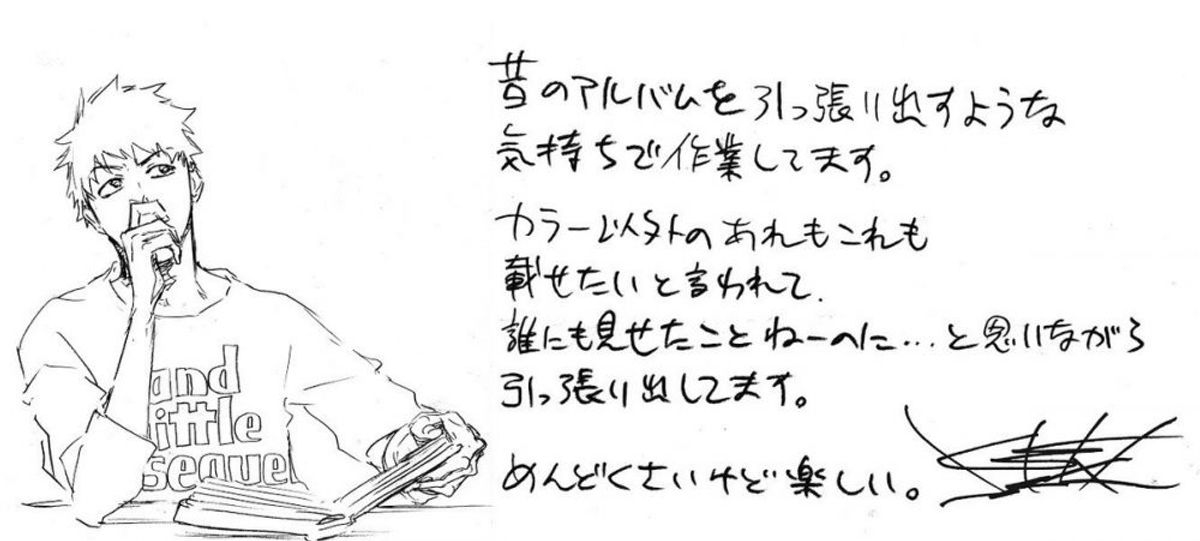 and
little
seque
昔のアルバムを引っ張り出すような
気持ちで作業してます。
カラー以外のあれもこれも
載せたいと言われて、
誰にも見せたことねーのに…と思いながら
引っ張り出してます。
めんどくさいけど楽しい。